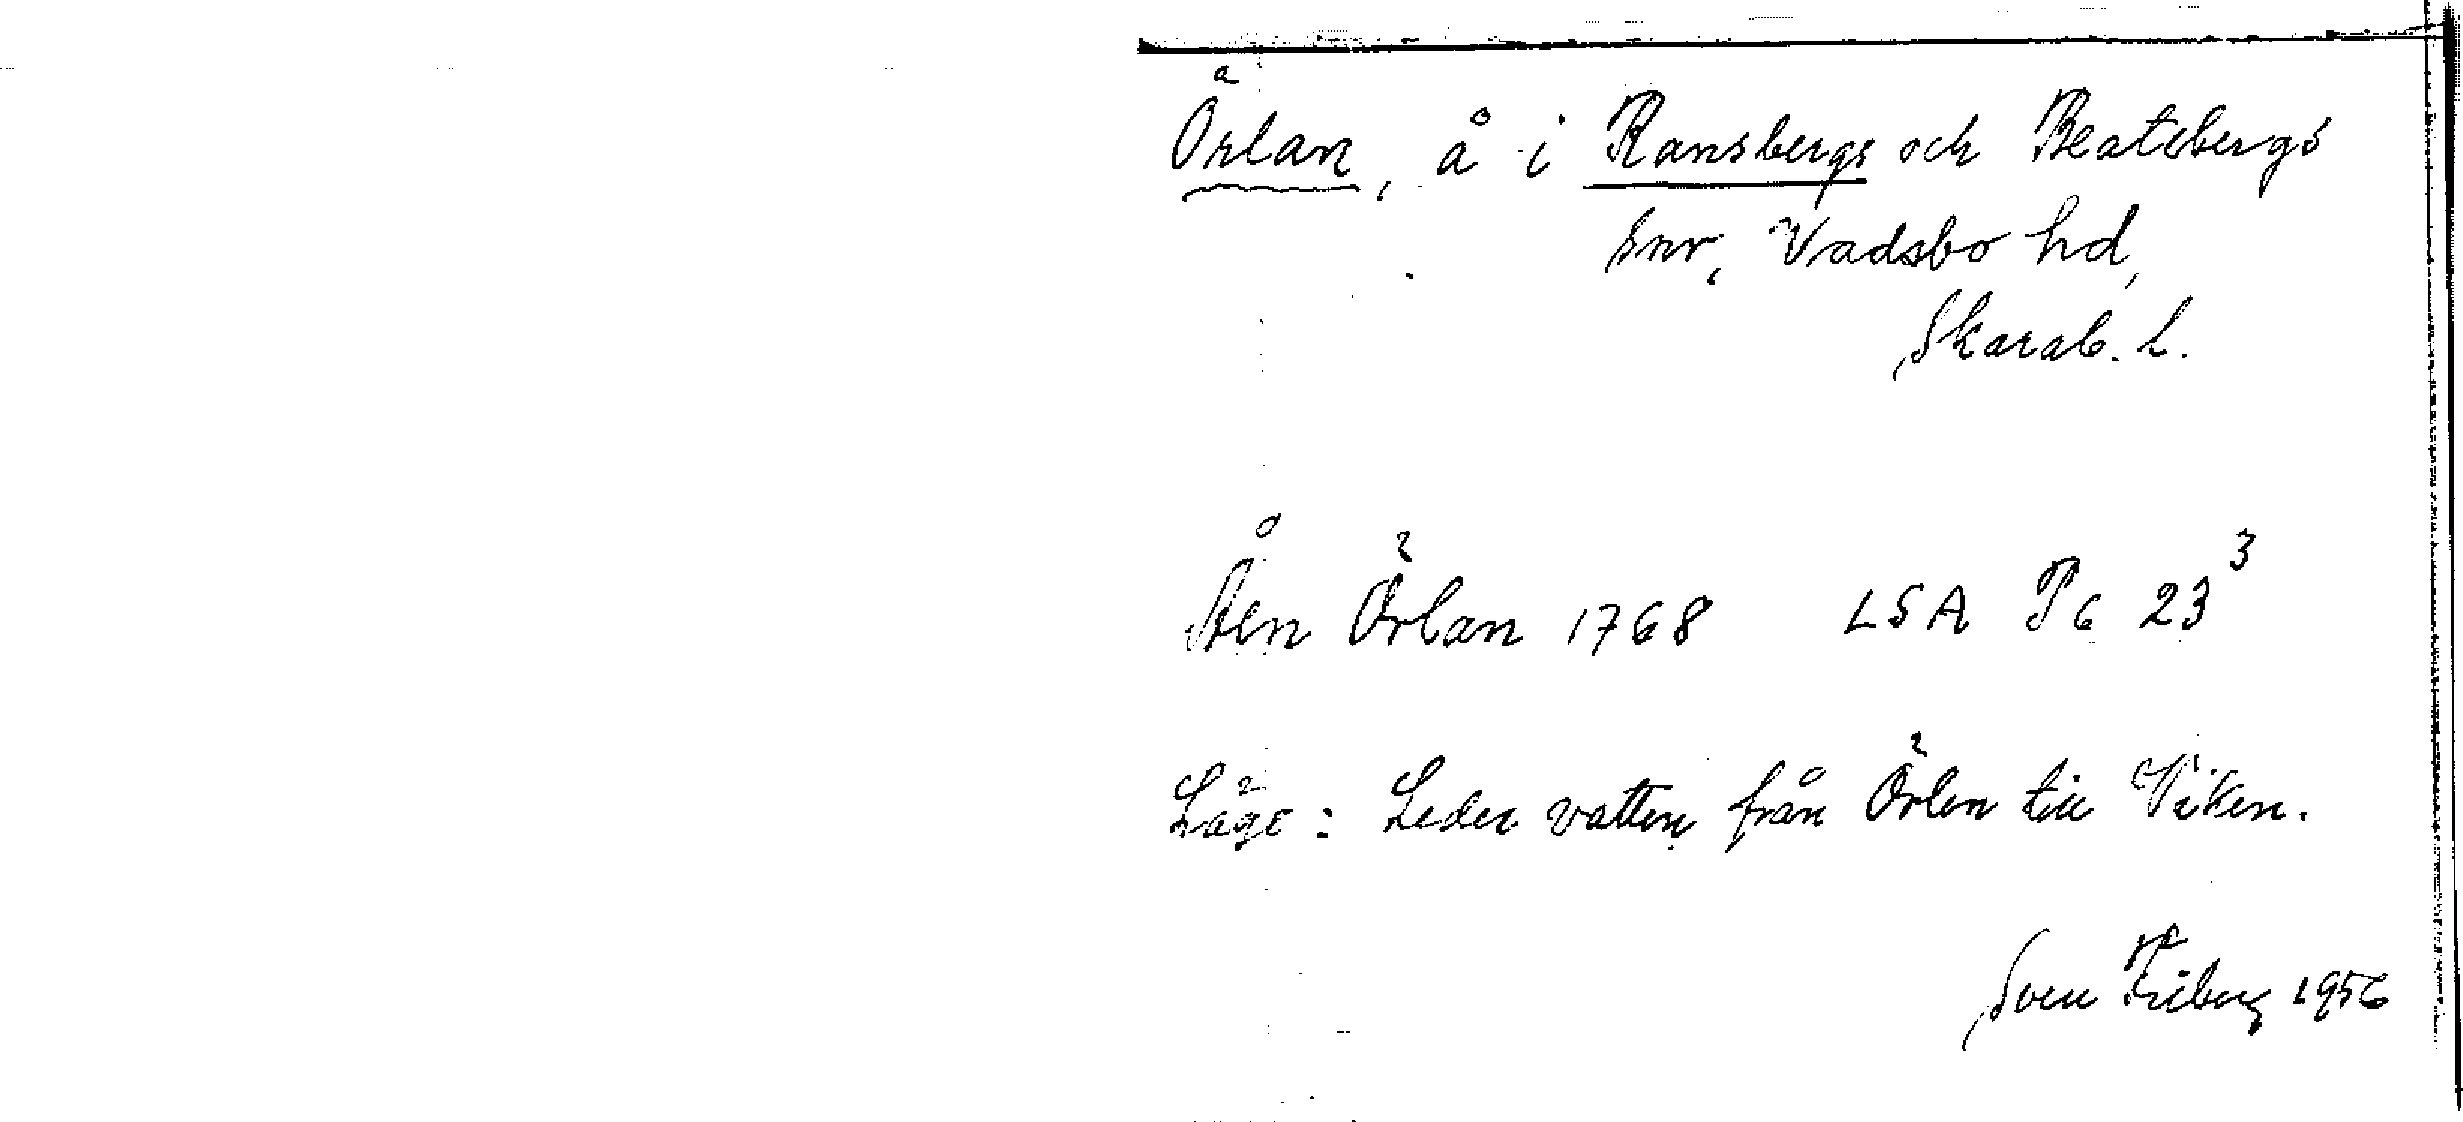 Örlan, å i Ransbergs och Beatebergs
snr, Vadsbo hd,
Skarab. l.
Åen Örlan 1768 LSA P6 23³
Läge: Leder vatten från Örlen till Viken.
Sven Friberg 1956